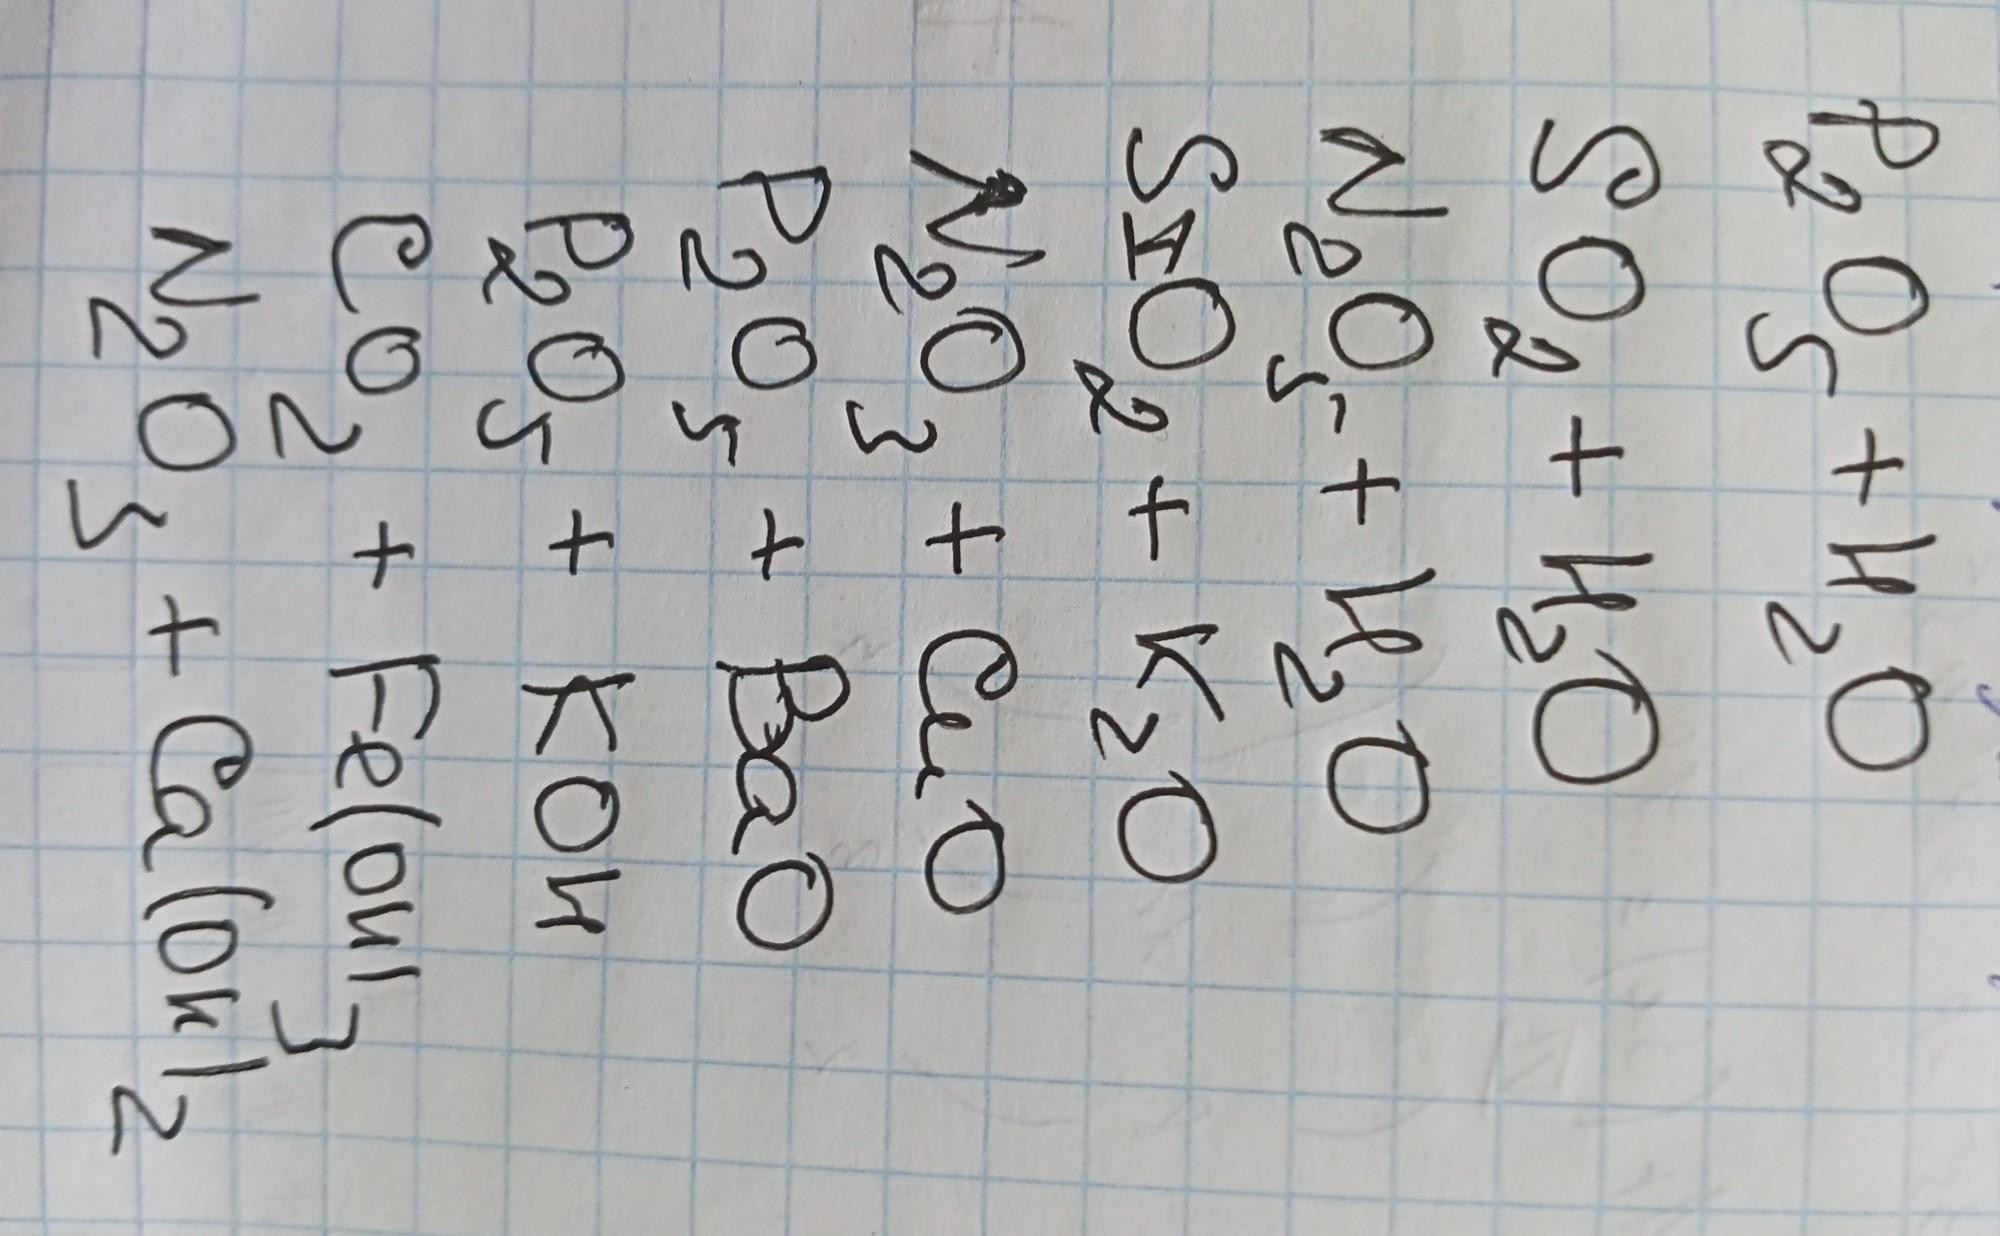 P₂O₅ + H₂O
SO₂ + H₂O
N₂O₅ + H₂O
SiO₂ + K₂O
N₂O₃ + CuO
P₂O₅ + BaO
P₂O₅ + KOH
CO₂ + Fe(OH)₃
N₂O₃ + Ca(OH)₂